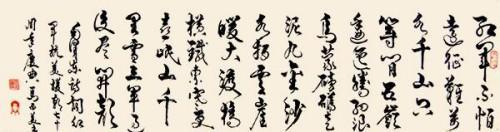 红軍不怕
遠征難萬
水千山只
等閒五嶺
逶迤騰细浪
烏蒙磅礴走
泥丸金沙
水拍雲崖
暖大渡橋
横鐵索寒更
喜岷山千
里雪三軍過
後盡開顔
毛澤東詩詞红
軍七十
周年